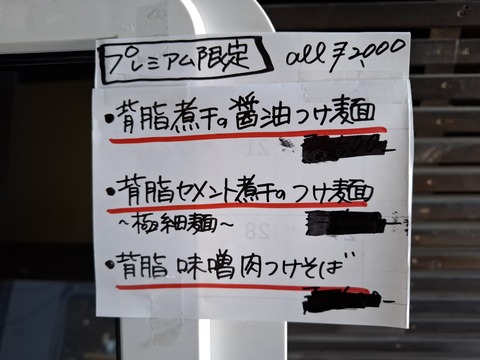 プレミアム限定 all ¥2,000
・背脂煮干の醤油つけ麺
・背脂セメント煮干のつけ麺
~極細麺~
・背脂 味噌肉つけそば